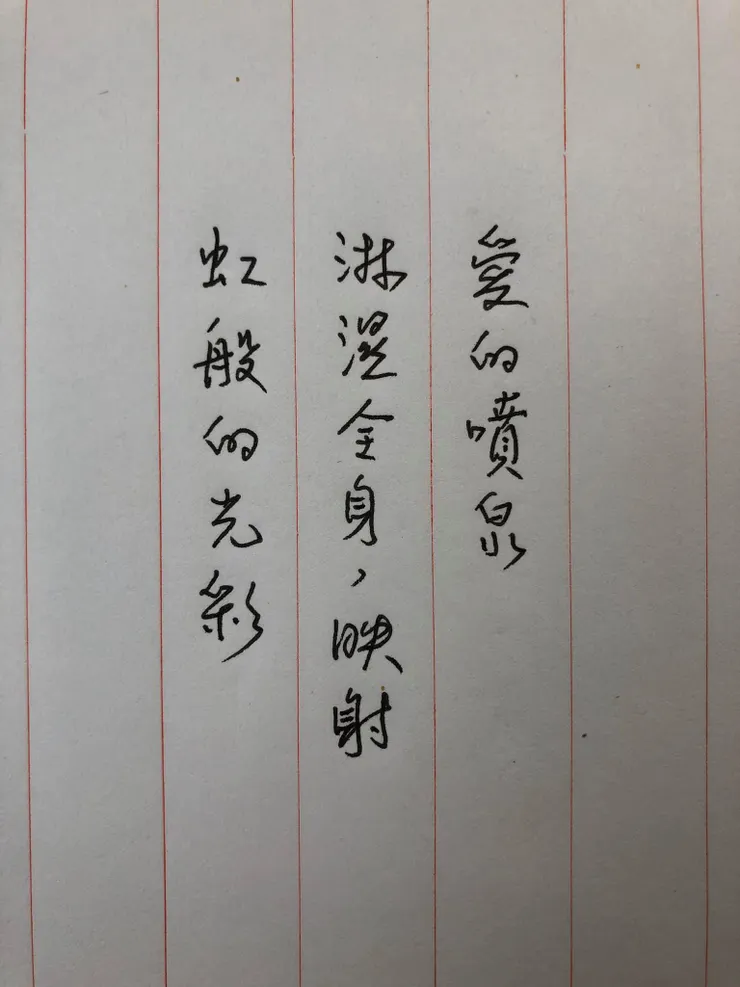 愛的噴泉
淋濕全身，映射
虹般的光彩